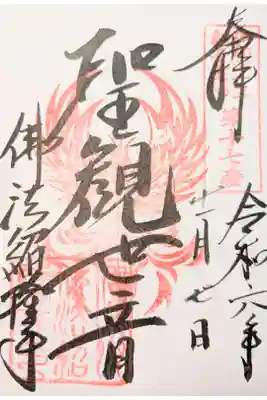 奉拝
令和六年
十一月七日
聖観世音
佛法紹隆寺